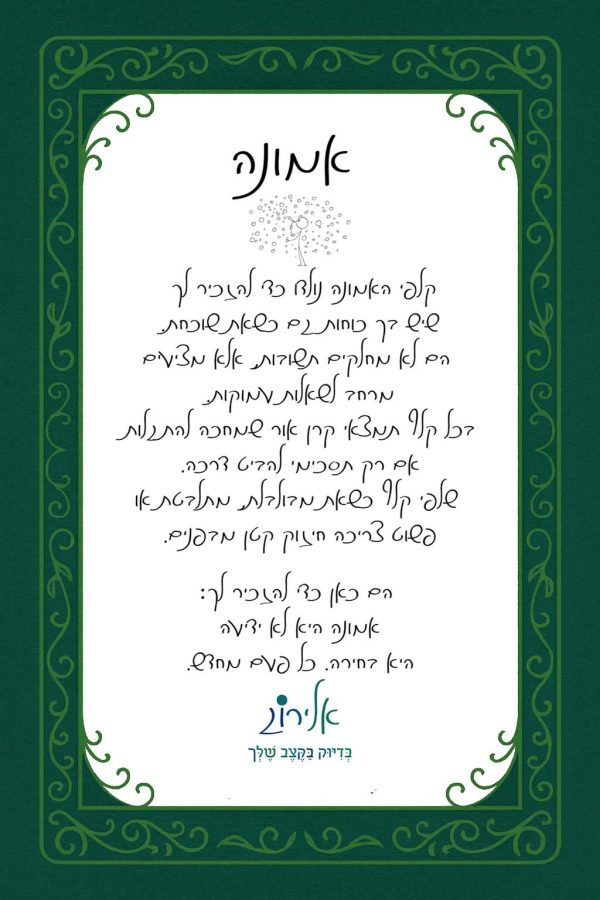 אמונה
קלפי האמונה נולדו כדי להזכיר לך
שיש בך כוחות גם כשאת שוכחת.
הם לא מחלקים תשובות, אלא מציעים
מרחב לשאלות עמוקות.
בכל קלף תמצאי קרן אור שמחכה להתגלות
אם רק תסכימי להביט דרכה.
שלפי קלף כשאת מבולבלת, מתלבטת או
פשוט צריכה חיזוק קטן מבפנים.
הם כאן כדי להזכיר לך:
אמונה היא לא ידיעה
היא בחירה. כל פעם מחדש.
אלירון
בְּדִיּוּק בַּקֶּצֶב שֶׁלָּךְ